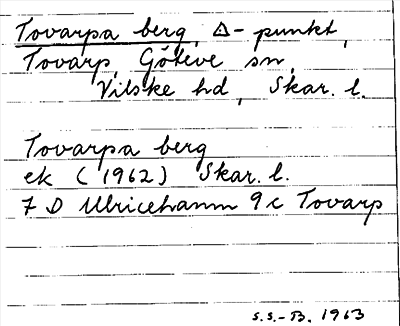 Tovarpa berg, △-punkt,
Tovarp, Göteve sn,
Vilske hd, Skar. l.
Tovarpa berg
ek (1962) Skar. l.
7 D Ulricehamn 9 c Tovarp
S.S.-B. 1963